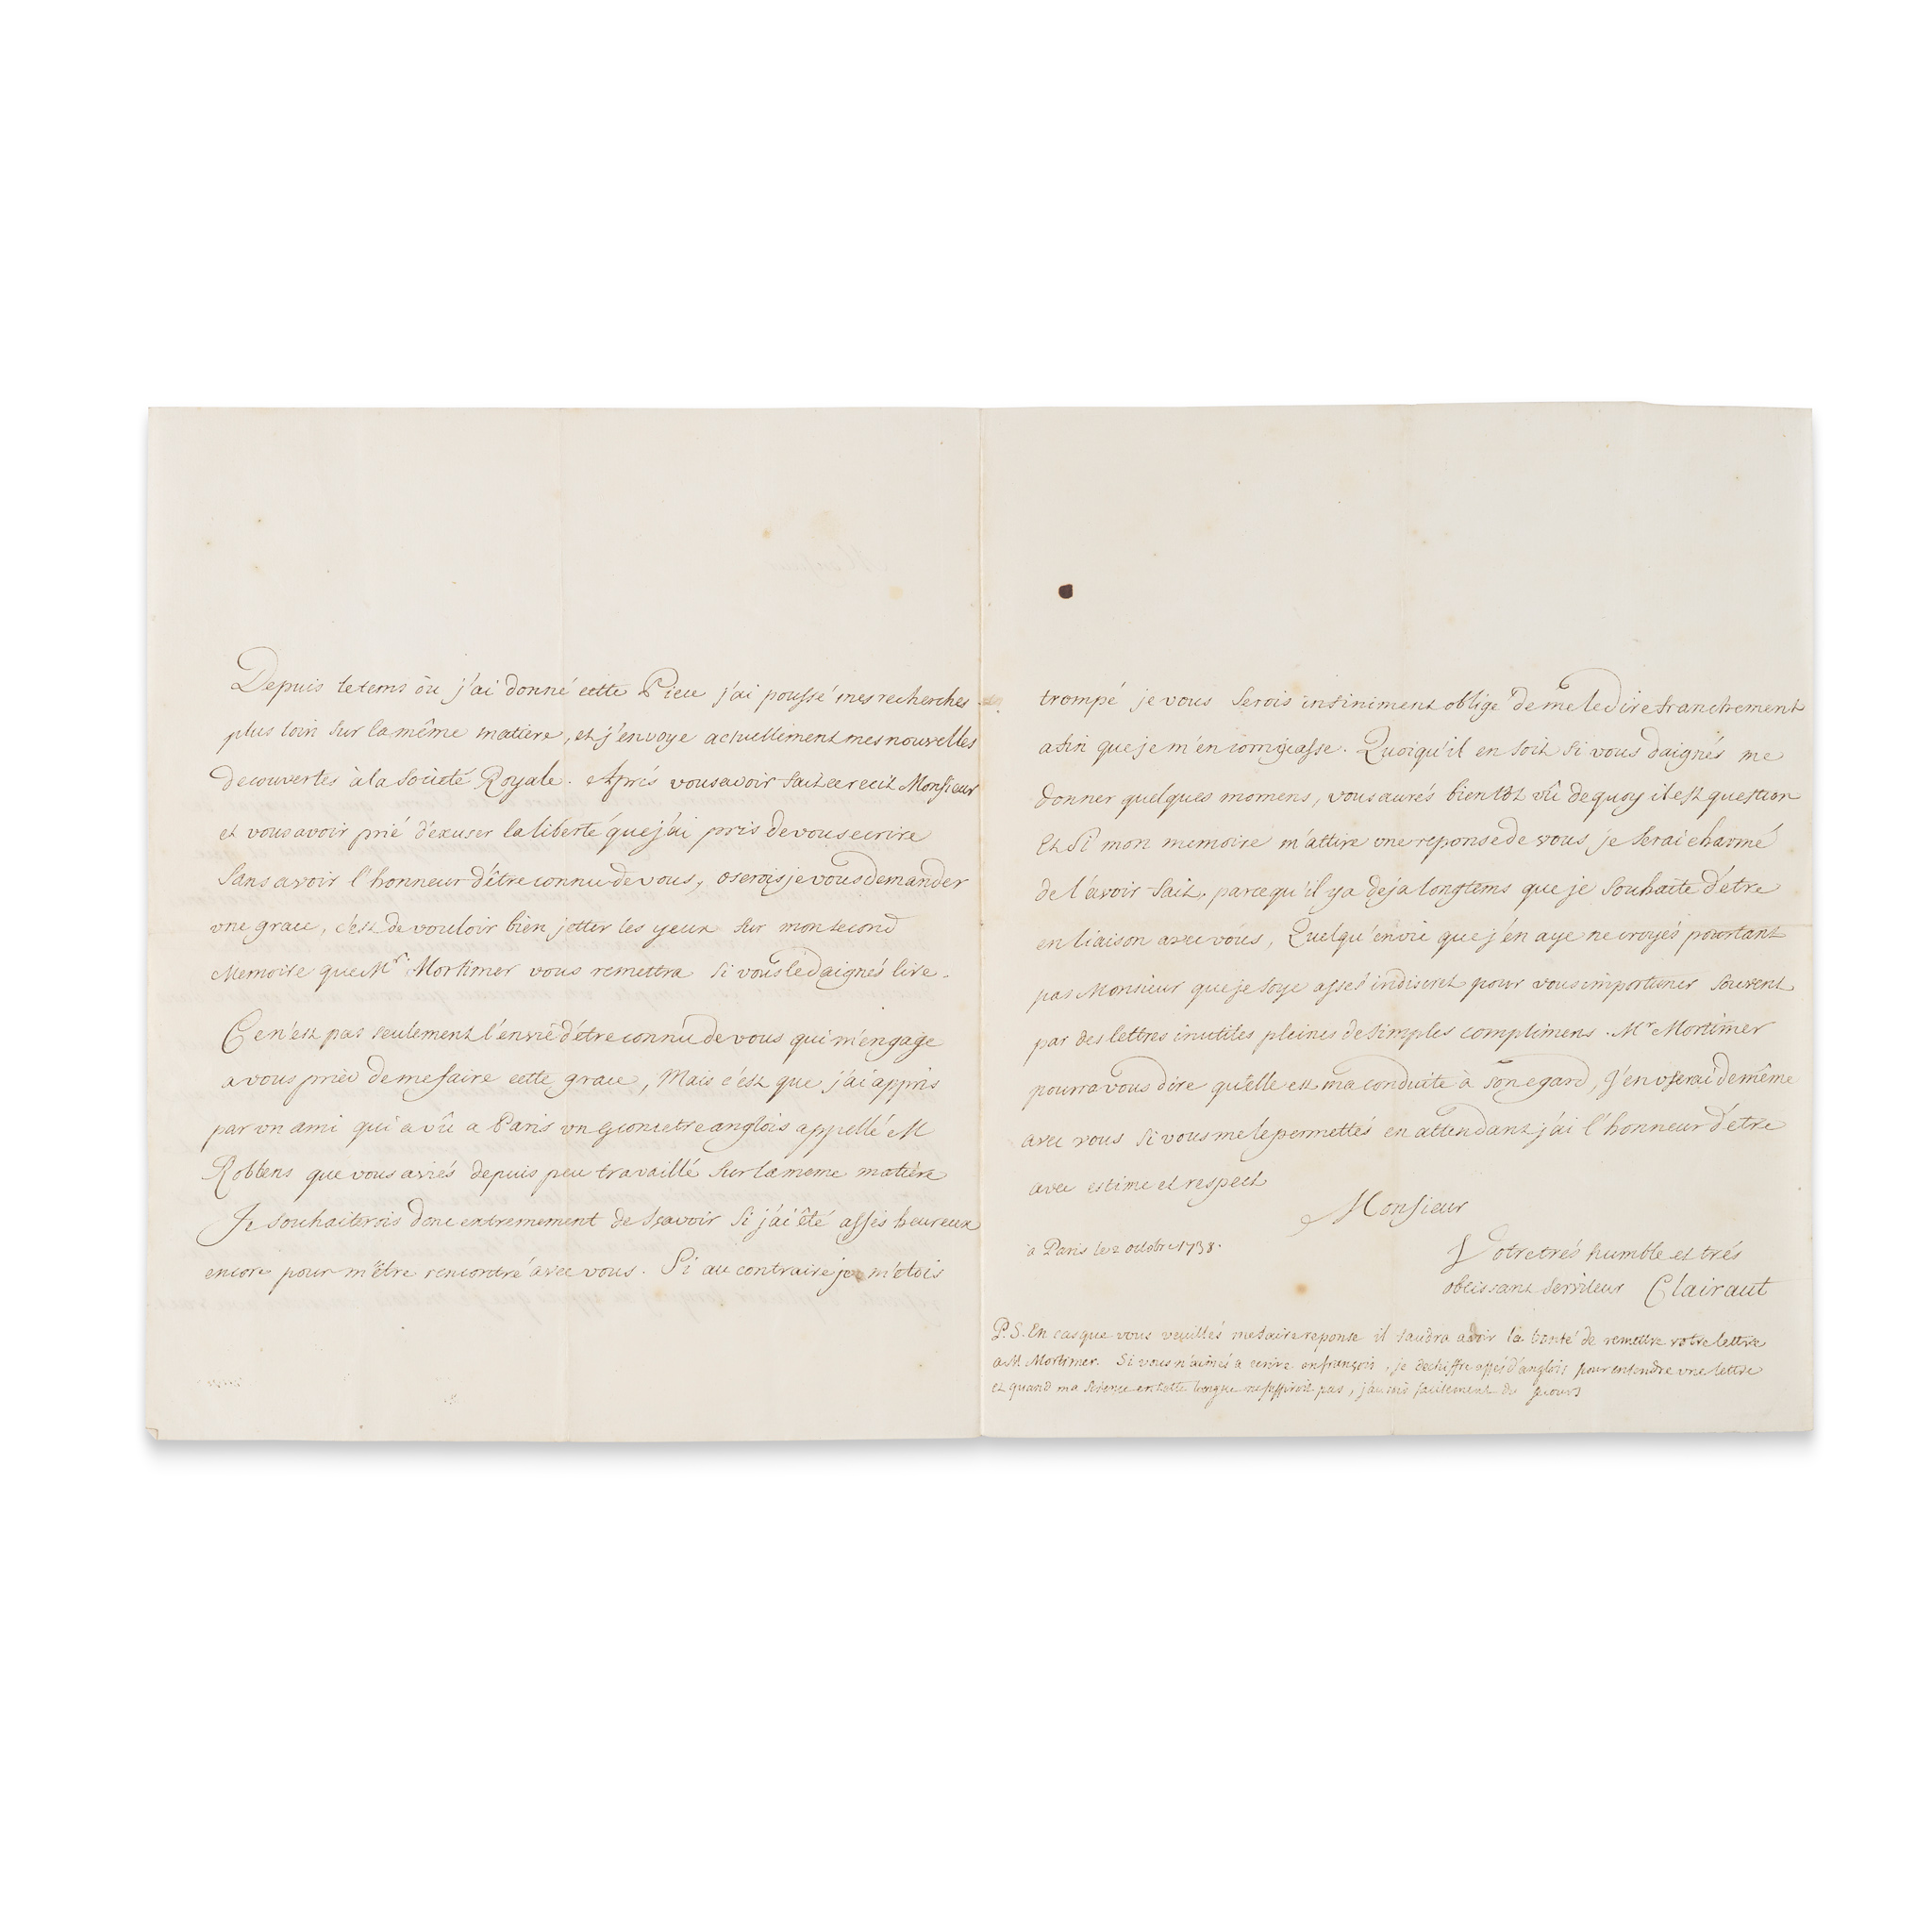 Depuis le tems où j'ai donné cette Piece j'ai poussé mes recherches
plus loin sur la même matiere, et j'envoye actuellement mes nouvelles
decouvertes à la Societé Royale. Après vous avoir fait ce recit Monsieur
et vous avoir prié d'excuser la liberté que j'ai pris de vous ecrire
sans avoir l'honneur d'être connu de vous, oserois je vous demander
une grace, c'est de vouloir bien jetter les yeux sur mon second
Memoire que Mr. Mortimer vous remettra si vous le daignés lire.
Ce n'est pas seulement l'envie d'etre connu de vous qui m'engage
a vous prier de me faire cette grace, Mais c'est que j'ai appris
par un ami qui a vû a Paris un geometre anglois appellé M
Robbens que vous aviés depuis peu travaillé sur la meme matiere
Je souhaiterois donc extremement de sçavoir si j'ai été assés heureux
encore pour m'être rencontré avec vous. Si au contraire je m'etois
trompé je vous serois infiniment obligé de me le dire franchement
afin que je m'en corrigeasse. Quoiqu'il en soit si vous daignés me
donner quelques momens, vous aurés bientot vû de quoy il est question
Et si mon memoire m'attire une reponse de vous je serai charmé
de l'avoir fait, parcequ'il y a deja longtems que je souhaite d'etre
en liaison avec vous, Quelqu'envie que j'en aye ne croyés pourtant
pas Monsieur que je soye assés indiscret pour vous importuner souvent
par des lettres inutiles pleines de simples complimens. Mr Mortimer
pourra vous dire qu'elle est ma conduite à son egard, J'en userai de même
avec vous si vous me le permettés en attendant j'ai l'honneur d'etre
avec estime et respect
Monsieur
à Paris le 2 octobre 1738.
Votre trés humble et trés
obeissant serviteur Clairaut
P.S. En cas que vous veuillés me faire reponse il faudra avoir la bonté de remettre votre lettre
a M. Mortimer. Si vous n'aimés a ecrire en françois, je dechiffre assés d'anglois pour entendre une lettre
et quand ma science en cette langue ne suffiroit pas, j'aurois facilement du secours